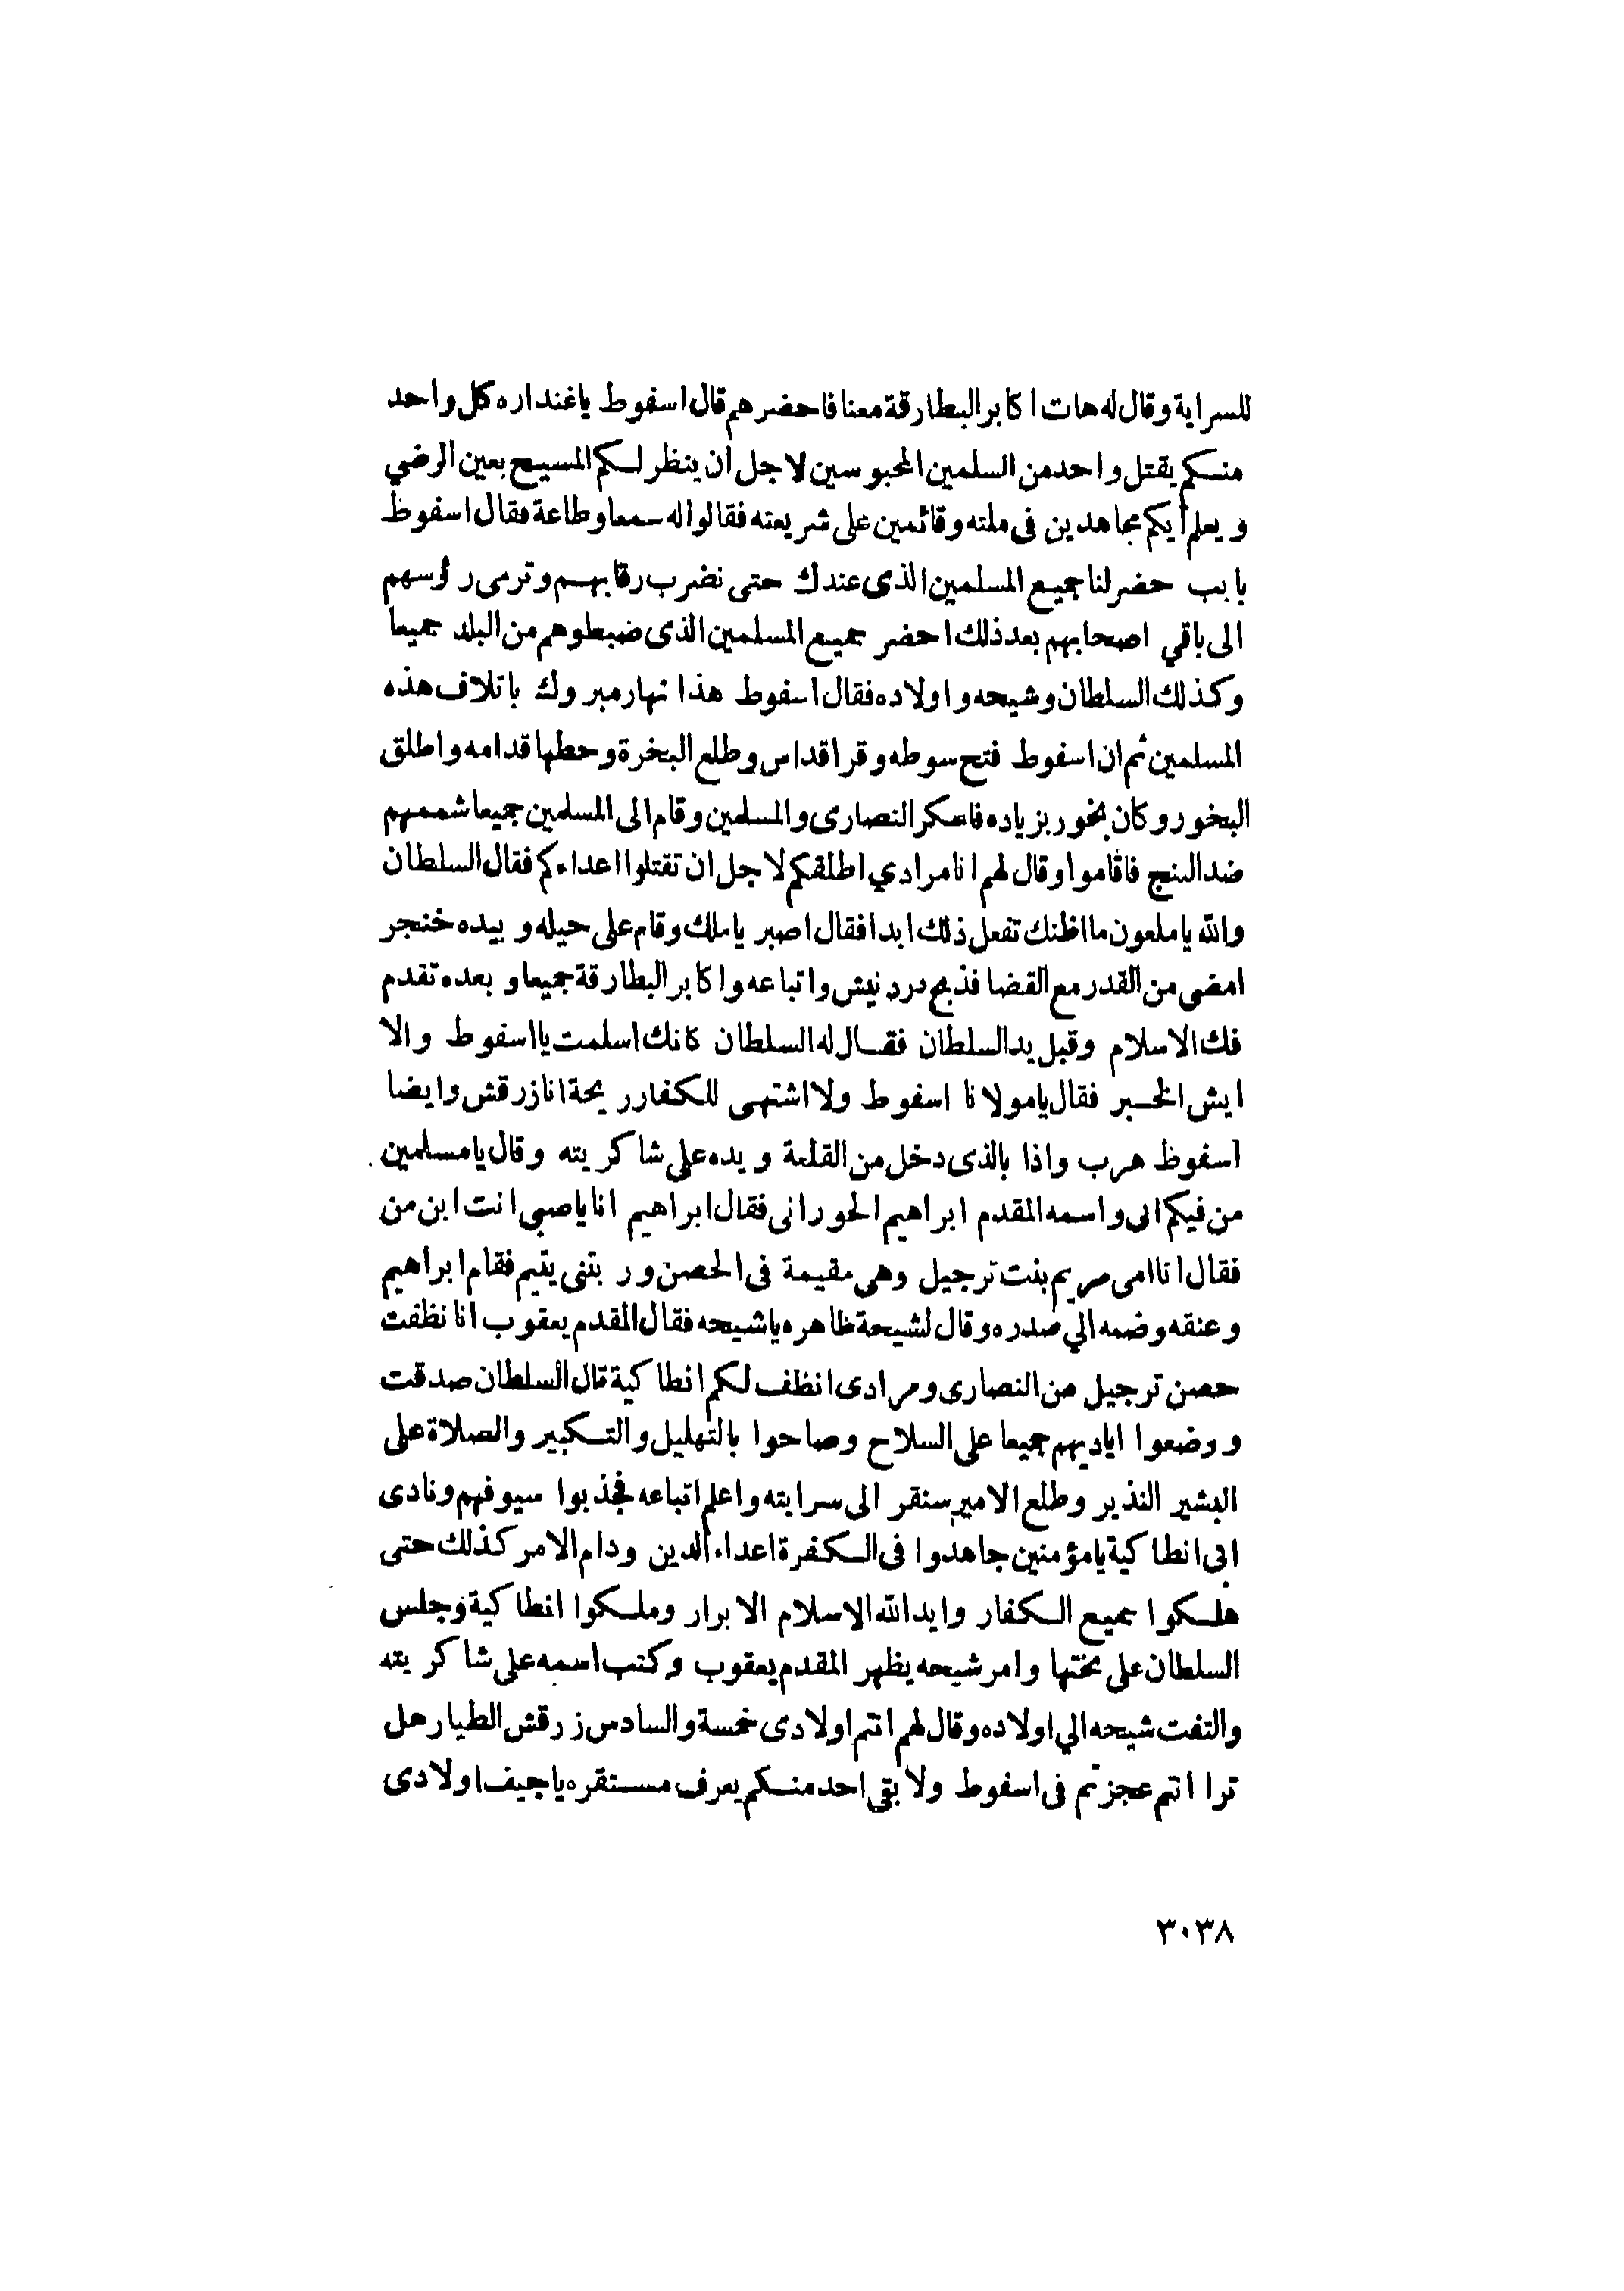 للسراية وقال له هات اكابر البطارقة معنا فاحضرهم قال اسفوط ياغنداره كل واحد
منكم يقتل واحد من السلمين المحبوسين لاجل ان ينظر لكم المسيح بعين الرضي
ويعلم أيكم مجاهدين فى ملته وقائمين على شريعته فقالوا له سمعا وطاعة فقال اسفوط
بابب حضر لنا جميع المسلمين الذى عندك حتى نضرب رقابهم وترمى رؤسهم
الى باقي اصحابهم بعد ذلك احضر جميع المسلمين الذى ضبطوهم من البلد جميعا
وكذلك السلطان وشيحه واولاده فقال اسفوط هذا نهار مبروك باتلاف هذه
المسلمين ثم ان اسفوط فتح سوطه وقرا قداس وطلع البخرة وحطها قدامه واطلق
البخور وكان بخور بزياده فاسكر النصارى والمسلمين وقام الى المسلمين جميعا شممهم
ضد البنج فاقاموا وقال لهم انا مرادي اطلقكم لاجل ان تقتلوا اعداءكم فقال السلطان
والله ياملعون ما اظنك تفعل ذلك ابدا فقال اصبر ياملك وقام على حيله وبيده خنجر
امضى من القدر مع القضا فذبح دردنيش واتباعه واكابر البطارقة جميعا وبعده تقدم
فك الاسلام وقبل يد السلطان فقال له السلطان كانك اسلمت يااسفوط والا
ايش الخبر فقال يامولانا اسفوط ولا اشتهى للكفار ريحة انا زرقش وايضا
اسفوظ هرب واذا بالذى دخل من القلعة ويده على شاكريته وقال يامسلمين
من فيكم ابى واسمه المقدم ابراهيم الحورانى فقال ابراهيم انا ياصبى انت ابن من
فقال انا امى مريم بنت ترجيل وهى مقيمة فى الحصن وربتنى يتيم فقام ابراهيم
وعنقه وضمه الي صدره وقال لشيحة ظاهره ياشيحه فقال المقدم يعقوب انا نظفت
حصن ترجيل من النصارى ومرادى انظف لكم انطاكية قال السلطان صدقت
ووضعوا اياديهم جميعا على السلاح وصاحوا بالتهليل والتكبير والصلاة على
البشير النذير وطلع الامير سنقر الى سرايته واعلم اتباعه فجذبوا سيوفهم ونادى
ابى انطاكية يامؤمنين جاهدوا فى الكفرة اعداء الدين ودام الامر كذلك حتى
هلكوا جميع الكفار وايد الله الاسلام الابرار وملكوا انطاكية وجلس
السلطان على تختها وامر شيحه يظهر المقدم يعقوب وكتب اسمه على شاكريته
والتفت شيحه الي اولاده وقال لهم انتم اولادى خمسة والسادس زرقش الطيار هل
ترا انتم عجزتم فى اسفوط ولا بقى احد منكم يعرف مستقره ياجيف اولادى
٣٠٣٨